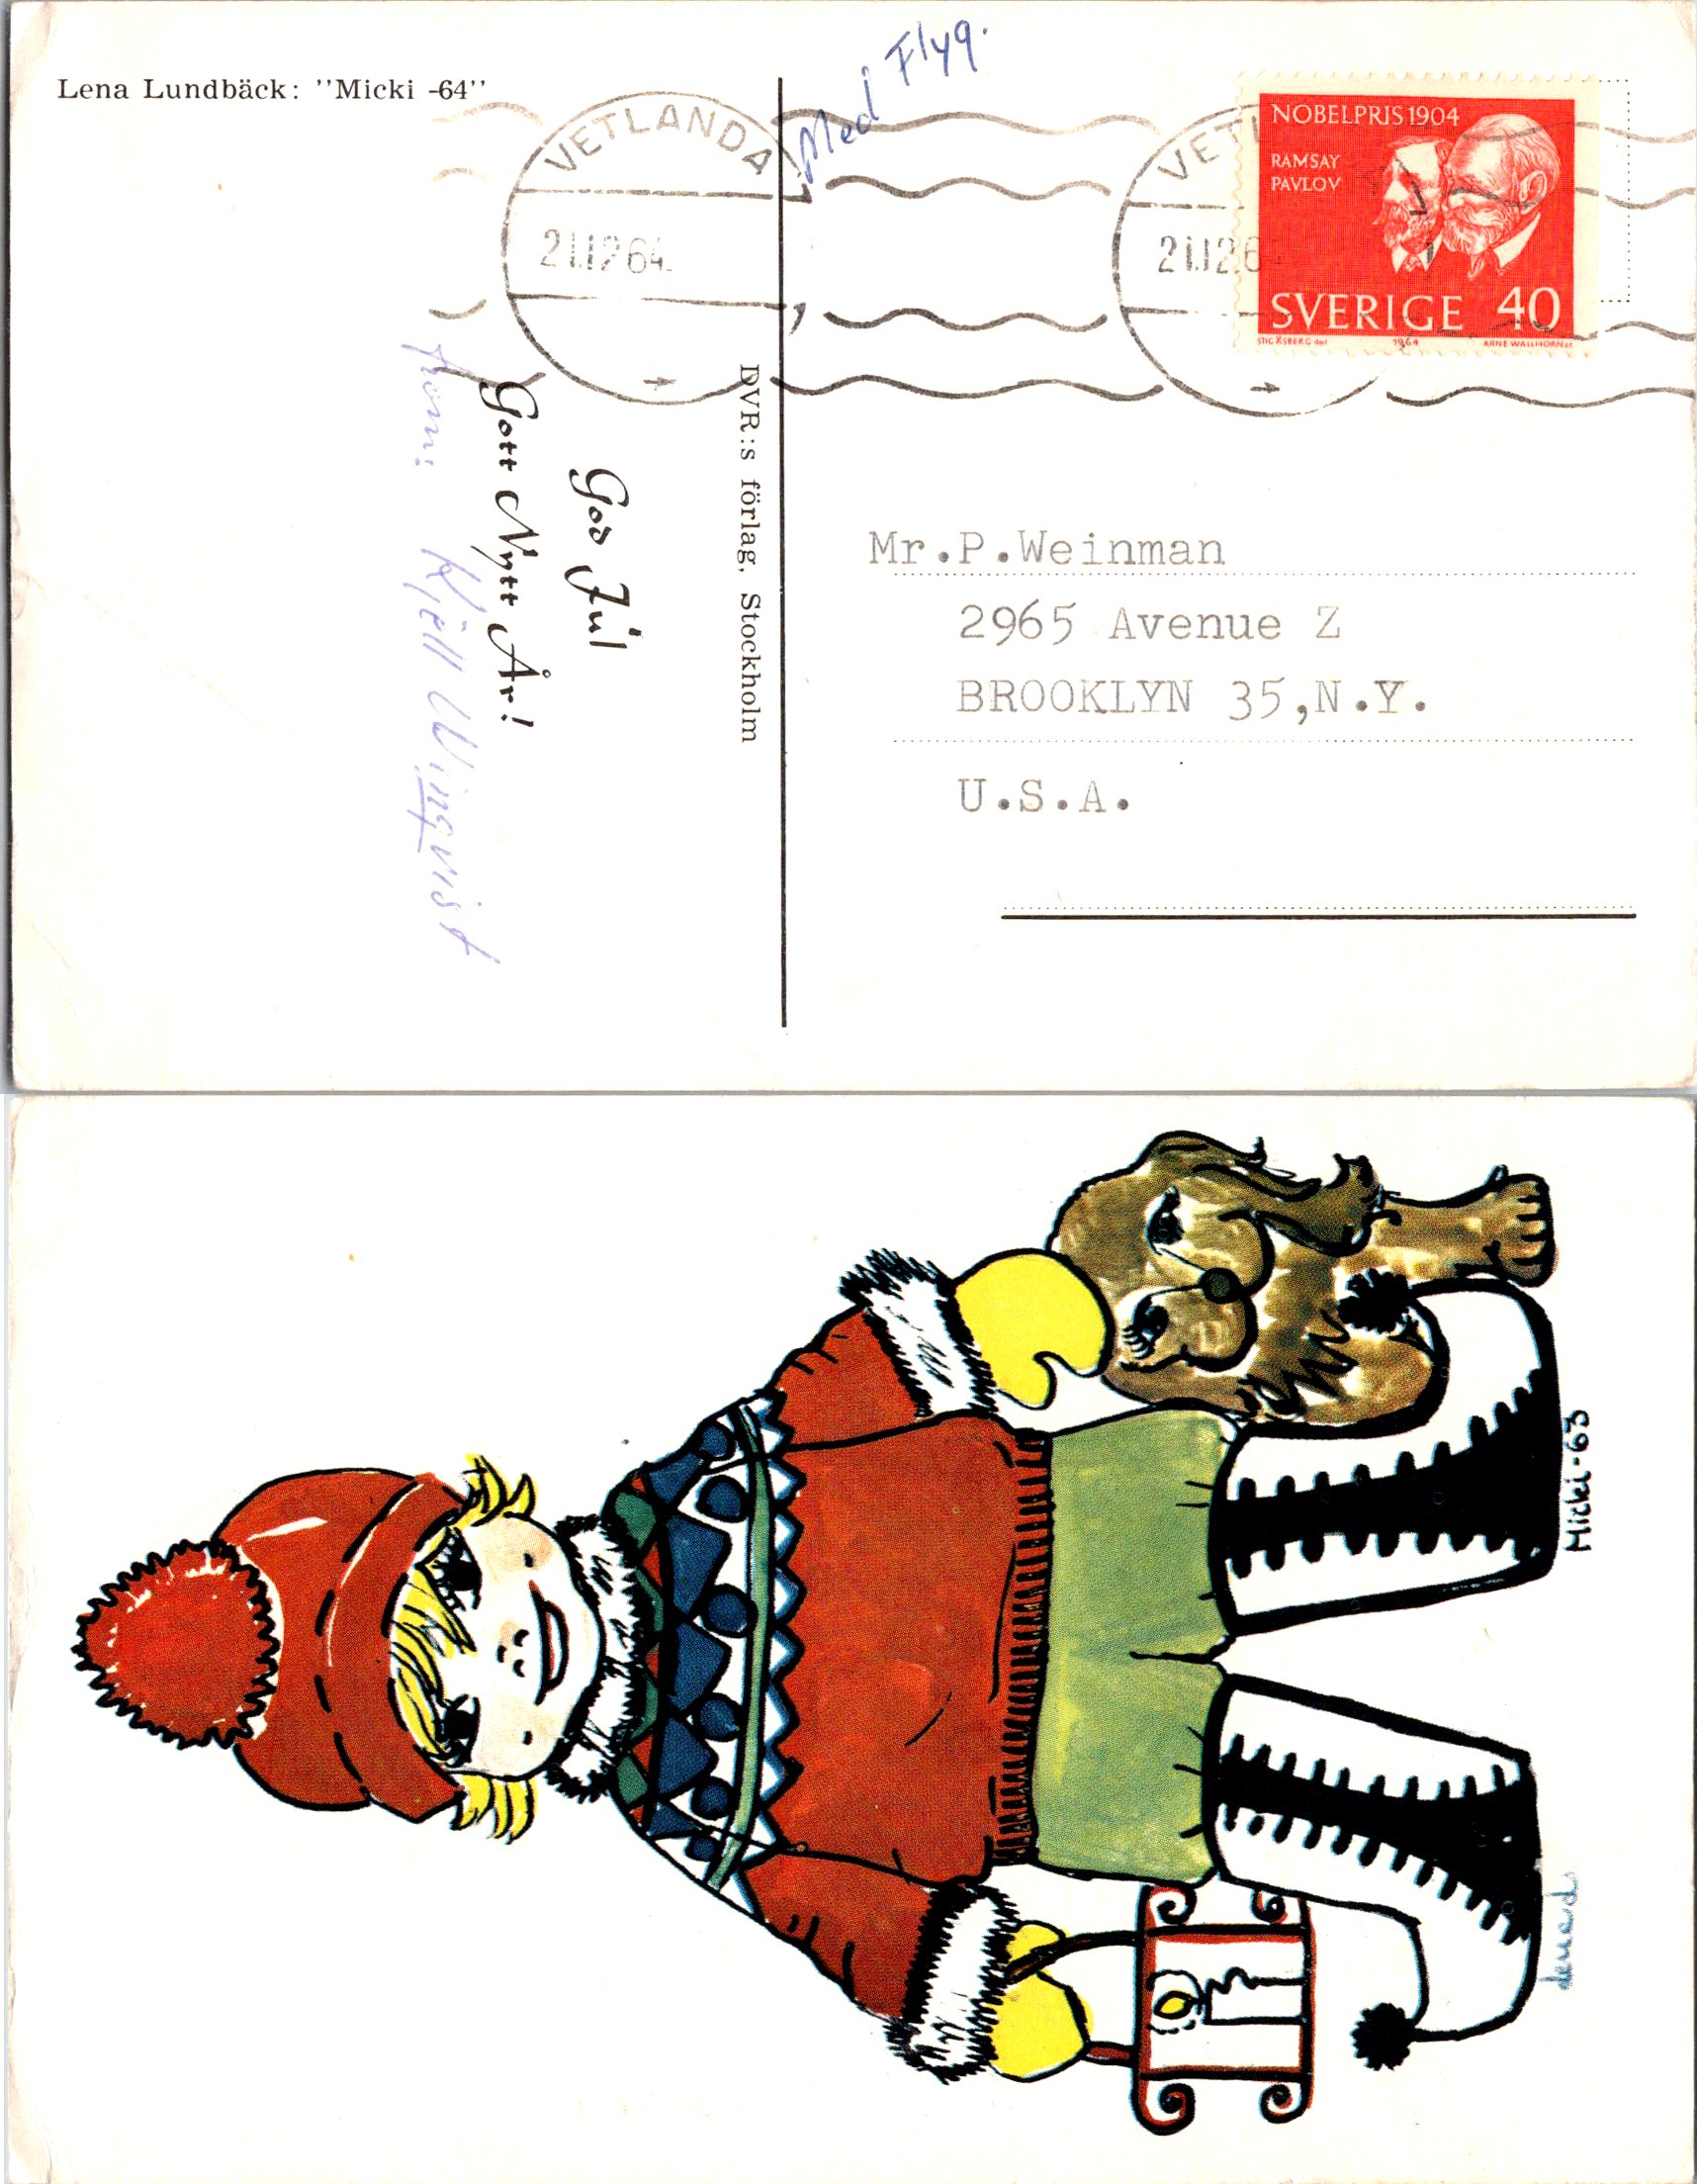 Lena Lundbäck: "Micki -64"
Med Flyg.
VETLANDA
21.12.64
VETL
21.12.6
NOBELPRIS 1904
RAMSAY
PAVLOV
SVERIGE 40
STIG ÅSBERG del 1964 ARNE WALLHORN sc
DVR:s förlag, Stockholm
God Jul
Gott Nytt År!
from: Kjell Wingqvist
Mr.P.Weinman
2965 Avenue Z
BROOKLYN 35,N.Y.
U.S.A.
Micki-63